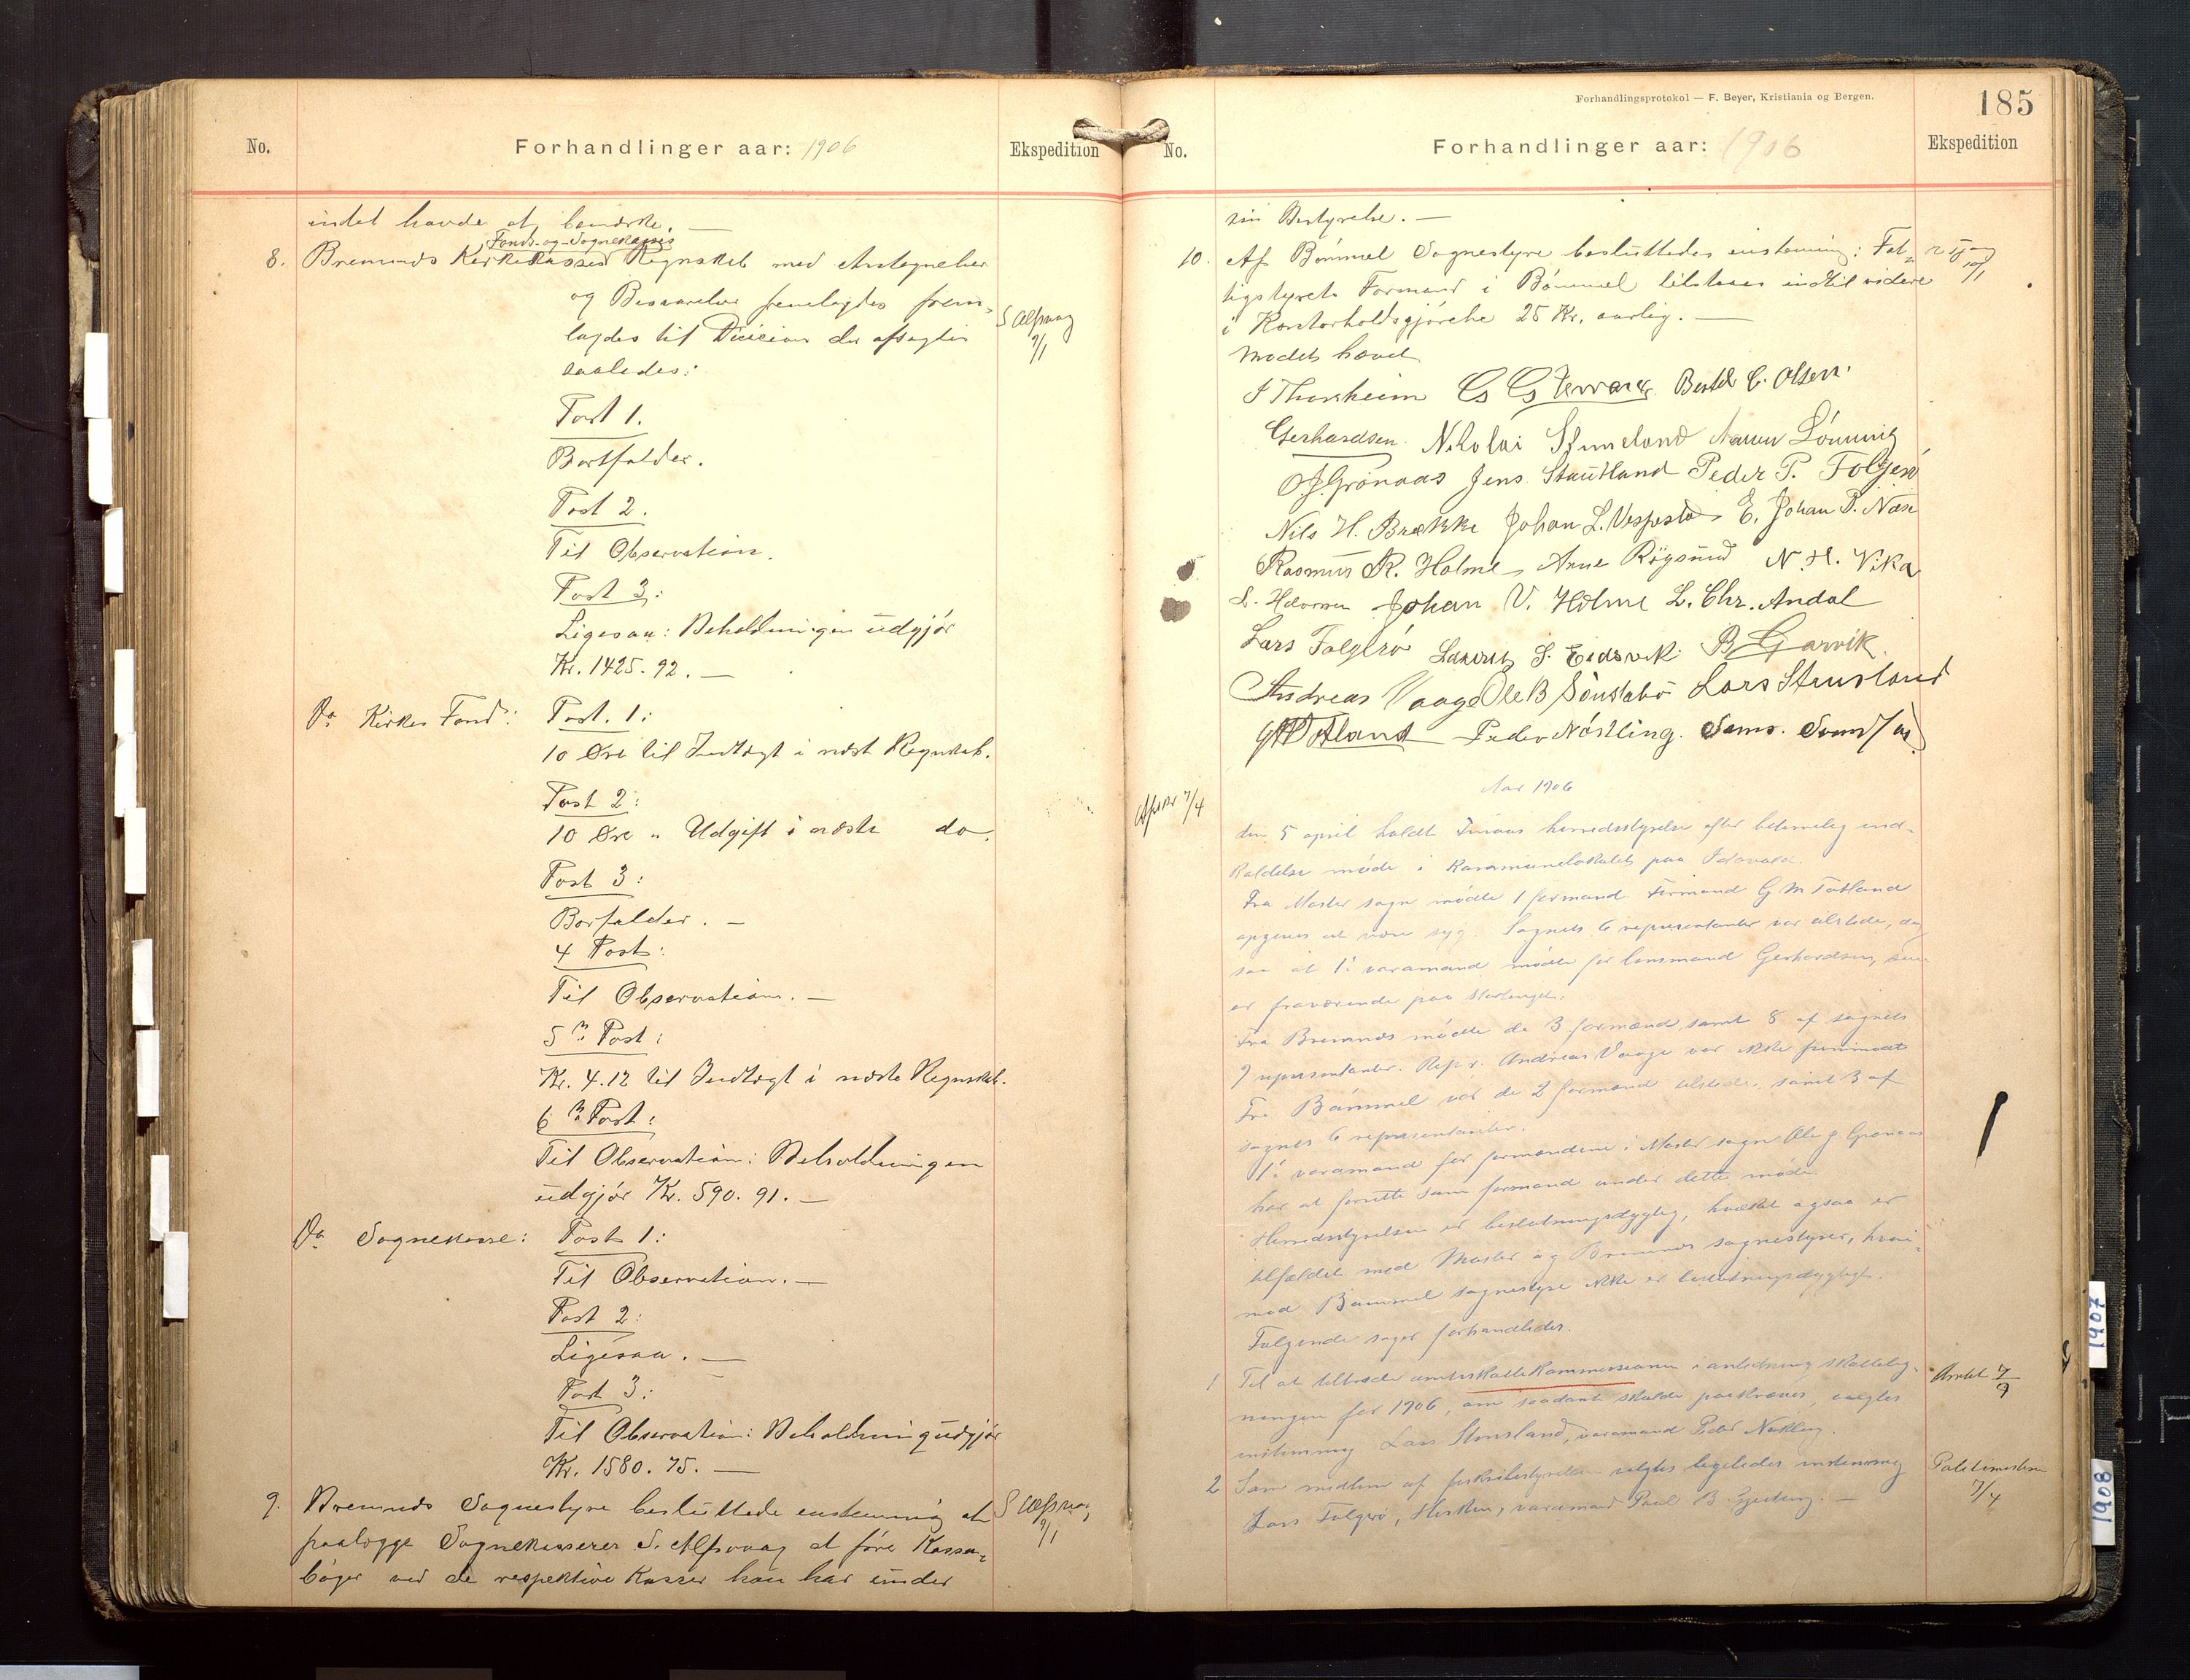 No.
Forhandlinger aar: 1906
Ekspedition
intet havde at bemærke. —
Fonds- og Sognekasses
8. Bremnes Kirkekasses Regnskab med Antegnelser
og Besvarelse fremlagdes frem-
lagdes til Decision der afsagdes
saaledes:
S Alfsvaag
9/1
Post 1.
Bortfalder.
Post 2.
Til Observation.
Post 3:
Ligesaa: Beholdningen udgjør
Kr. 1425.92. —
Do Kirkes Fond: Post. 1:
10 Øre til Indtægt i næst Regnskab.
Post 2:
10 Øre " Udgift i næste do.
Post 3:
Borfalder. —
4 Post:
Til Observation. —
5te Post:
Kr. 4.12 til Indtægt i næste Regnskab.
6te Post:
Til Observation: Beholdningen
udgjør Kr. 590.91. —
Do Sognekasse: Post 1:
Til Observation. —
Post 2:
Ligesaa. —
Post 3:
Til Observation: Beholdning udgjør
Kr. 1580.75. —
9. Bremnes Sognestyre besluttede enstemmig at
paalægge Sognekasserer S. Alfsvaag at føre Kassa-
bøger ved de respektive Kasser han har under
S Alfsvaag
9/1
Forhandlingsprotokol — F. Beyer, Kristiania og Bergen.
185
No.
Forhandlinger aar: 1906
Ekspedition
sin Bestyrelse. —
10. Af Bømmel Sognestyre besluttedes enstemmig: Fat-
tigstyrets Formand i Bømmel tilstaaes indtil videre
i Kontorholdsgjørelse 25 Kr. aarlig. —
Mødet hævet
J Thorsheim Bertel C. Olsen.
Gerhardsen. Nikolai Lønning
O. J. Grønaas Jens Stautland Peder P. Folgerø
Nils H. Brække Johan L. Vespestad E. Johan P. Næse
Rasmus R. Holme Arne Røgsund N. H. Vika
L. Halvorsen Johan V. Holme L. Chr. Andal
Lars Folgerø Laurits S. Eidsvik B Gjarvik.
Andreas Vaage Ole B Sønstabø Lars Stensland
G M Totland Peder Nøstling. Sams.
Aar 1906
Afskr 7/4
den 5 april holdt Finaas herredsstyrelse efter betimelig ind-
kaldelse møde i Kommunelokalet paa Idavald.
Fra Moster sogn mødte 1 formand Formand G M Totland
opgives at være syg. Sognets 6 representanter var tilstede, dog
saa at 1. varamand mødte for lensmand Gerhardsen, som
er fraværende paa Stortinget.
Fra Bremnes mødte de 3 formænd samt 8 af sognets
9 representanter. Repr. Andreas Vaage var ikke fremmødt
Fra Bømmel var de 2 formænd tilstede, samt 3 af
sognets 6 representanter.
1. varamand for formændene i Moster sogn Ole J Grønaas
har at forrette som formand under dette møde.
Herredsstyrelsen er beslutningsdygtig, hvilket ogsaa er
tilfældet med Moster og Bremnes sognestyrer, hvori-
mod Bømmel sognestyre ikke er beslutningsdygtigt.
Følgende sager forhandledes.
1 Til at tiltræde amtsskattekommissionen i anledning skattelig-
ningen for 1906, om saadant skulde paakræves, valgtes
enstemmig Lars Stensland, varamand Peder Nøstling.
2 Som medlem af forliksbestyrelsen valgtes ligeledes enstemmig
Lars Folgerø, varamand Paul B.
Amtet 7/
Politimesteren
7/4
1907
1908